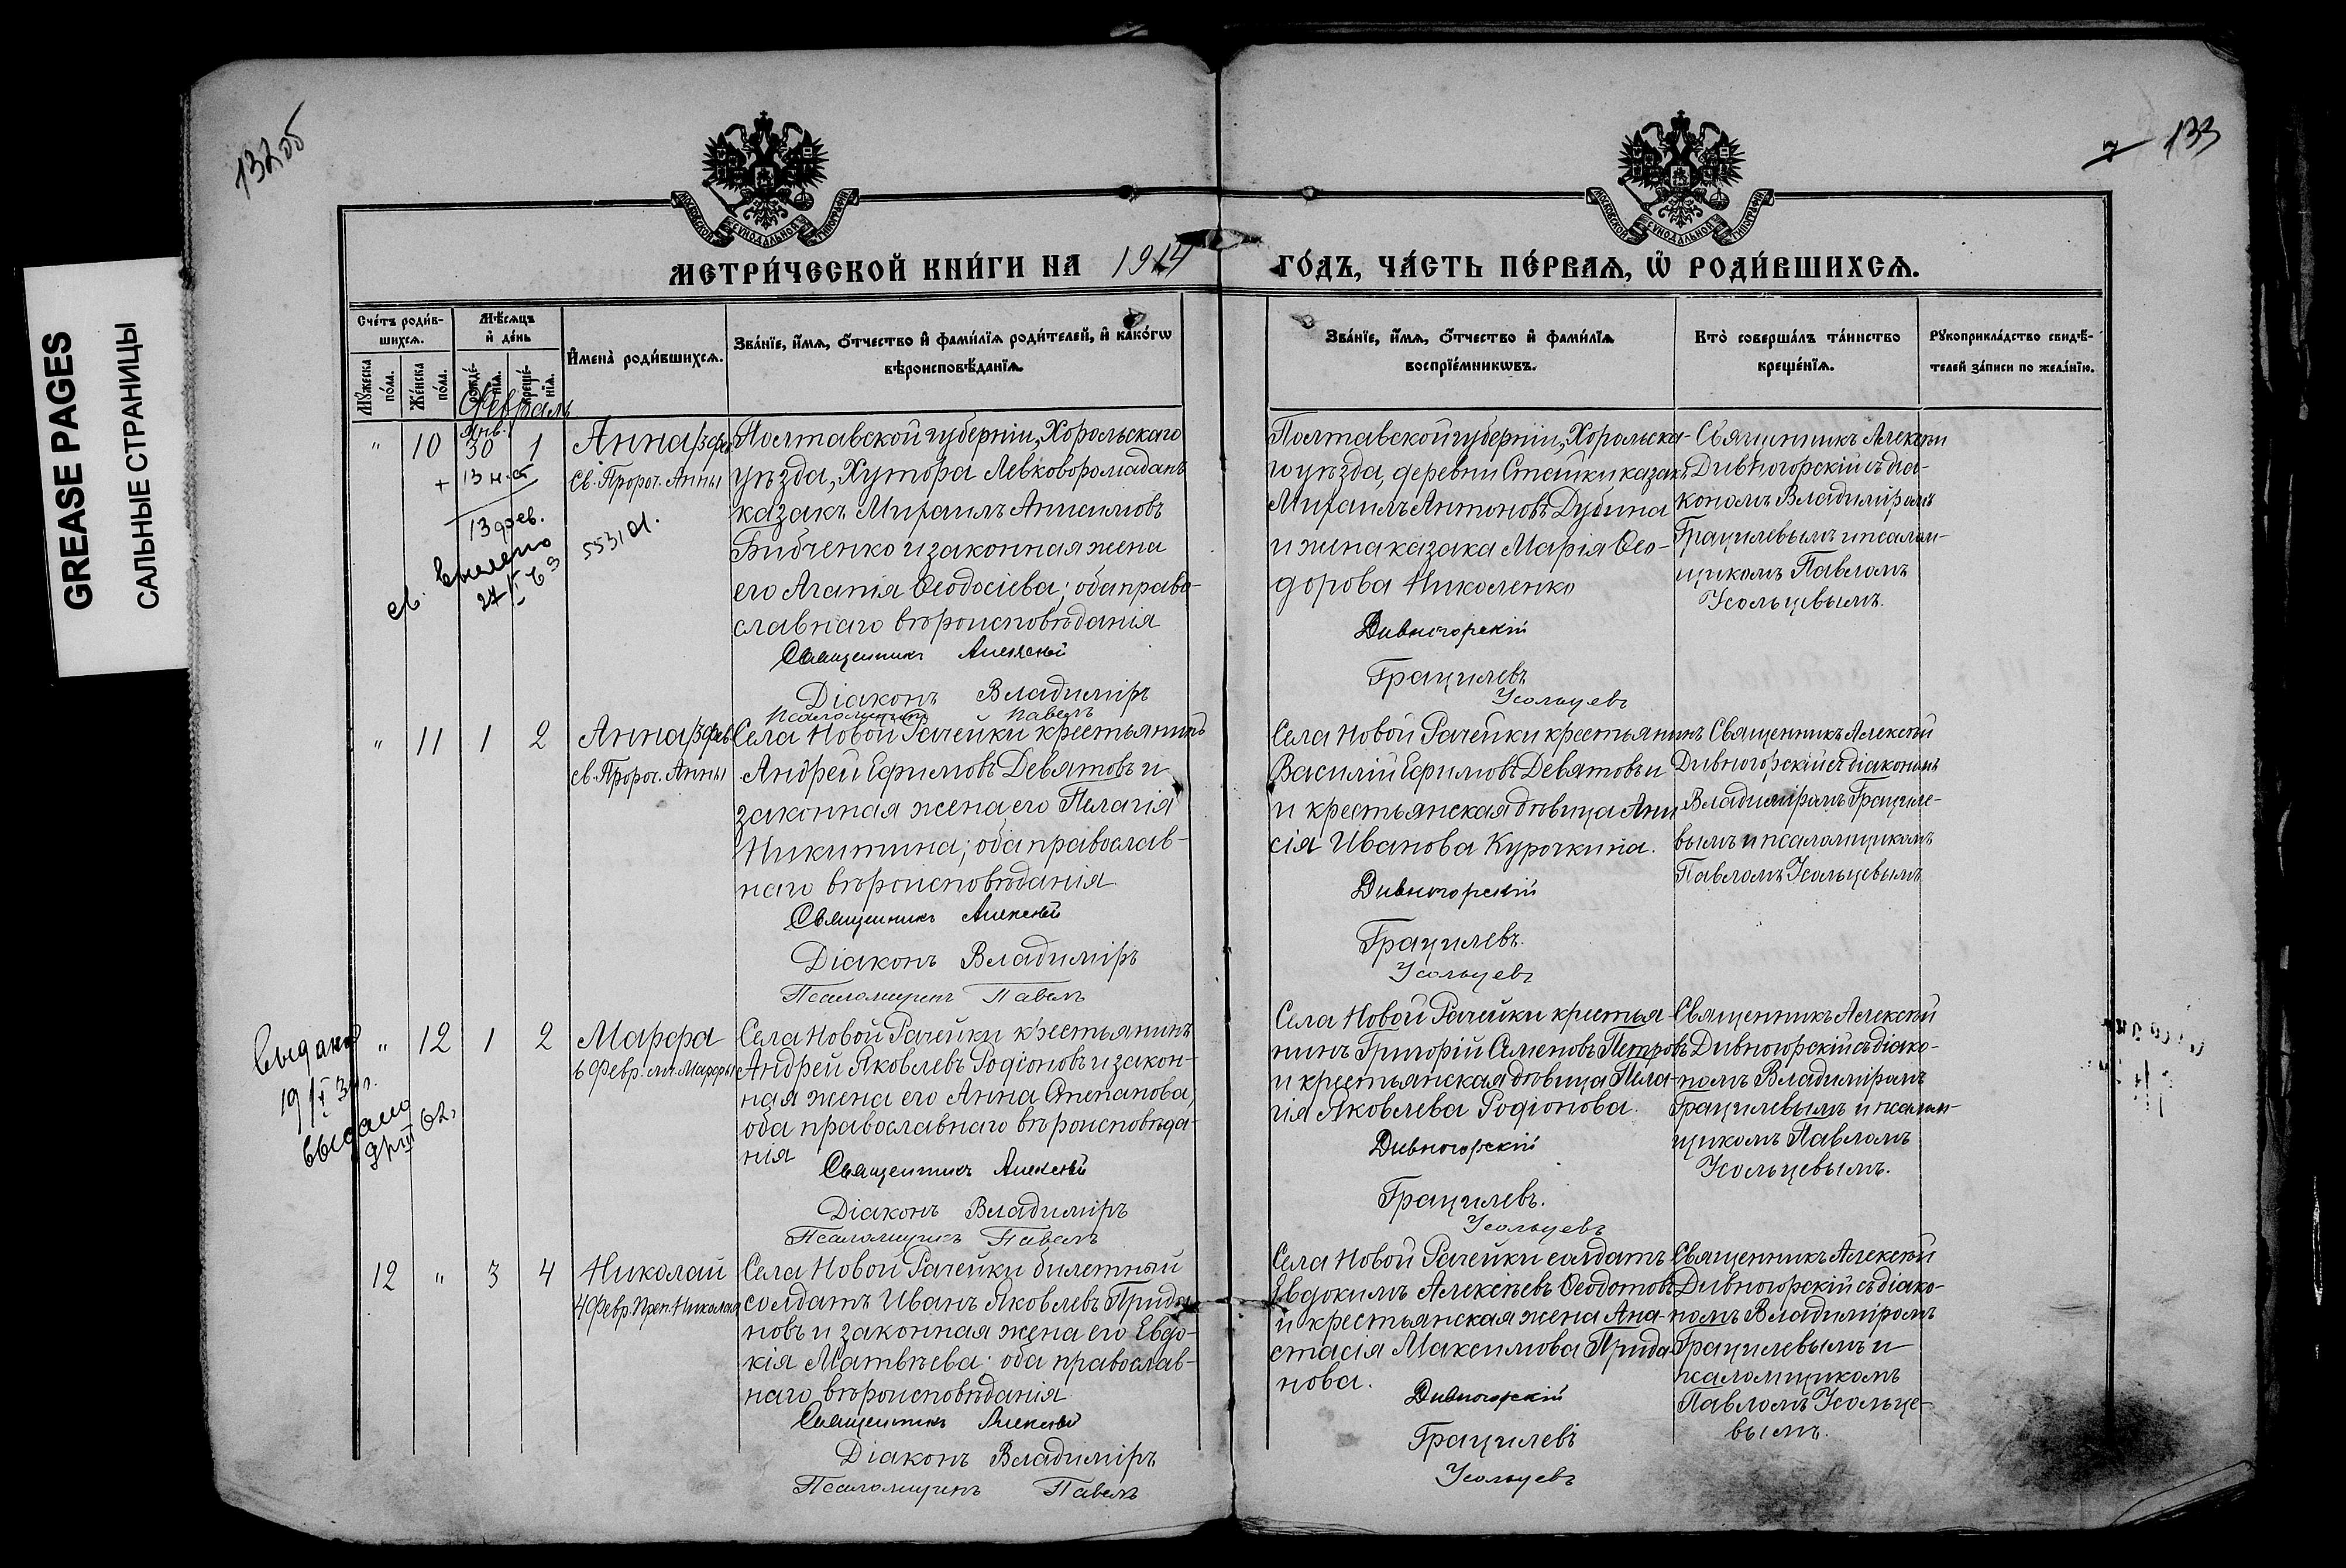 132 об
7 133
GREASE PAGES
САЛЬНЫЕ СТРАНИЦЫ
МОСКОВСКОЙ СѴНОДАЛЬНОЙ ТИПОГРАФІИ
МОСКОВСКОЙ СѴНОДАЛЬНОЙ ТИПОГРАФІИ
МЕТРИ́ЧЕСКОЙ КНИ́ГИ НА 1914 ГО́ДЪ, ЧА́СТЬ ПЕ́РВАѦ, Ѽ РОДИ́ВШИХСѦ.
Сче́тъ роди́в-
шихсѧ.
Мꙋ́жеска по́ла.
Же́нска по́ла.
Мѣ́сѧцъ
и҆ де́нь
рожде́-нїѧ.
креще́-нїѧ.
И҆мена̀ роди́вшихсѧ.
Зва́нїе, и҆́мѧ, ѻ҆́тчество и҆ фами́лїѧ роди́телей, и҆ како́гѡ
вѣроисповѣ́данїѧ.
Зва́нїе, и҆́мѧ, ѻ҆́тчество и҆ фами́лїѧ
воспрїе́мникѡвъ.
Кто̀ соверша́лъ та́инство
креще́нїѧ.
Рꙋкоприкла́дство свидѣ́-
телей за́писи по жела́нїю.
Февраль
" 10 Янв. 30 1 Анна 3 фев.
св. Пророч. Анны
+ 13 н. ст
13 фев.
св. выслано
553101.
Полтавской губерніи, Хорольскаго
уѣзда, Хутора Левковоромаданъ
казакъ Михаилъ Анисимовъ
Бибченко и законная жена
его Агапія Ѳеодосіева; оба право-
славнаго вѣроисповѣданія
Священникъ Алексѣй
Діаконъ Владиміръ
Псаломщикъ Павелъ
Полтавской губерніи, Хорольска-
го уѣзда, деревни Стайки казакъ
Михаилъ Антоновъ Дубина
и жена казака Марія Ѳео-
дорова Николенко
Дивногорскій
Грацилевъ
Усольцевъ
Священникъ Алексѣй
Дивногорскій съ діа-
кономъ Владиміромъ
Грацилевымъ и псалом-
щикомъ Павломъ
Усольцевымъ.
" 11 1 2 Анна 3 фев.
св. Пророч. Анны
Села Новой Рачейки крестьянинъ
Андрей Ефимовъ Девятовъ и
законная жена его Пелагія
Никитина; оба православ-
наго вѣроисповѣданія
Священникъ Алексѣй
Діаконъ Владиміръ
Псаломщикъ Павелъ
Села Новой Рачейки крестьянинъ
Василій Ефимовъ Девятовъ и
и крестьянская дѣвица Ани
сія Иванова Курочкина.
Дивногорскій
Грацилевъ.
Усольцевъ
Священникъ Алексѣй
Дивногорскій съ діакономъ
Владиміромъ Грациле-
вымъ и псаломщикомъ
Павломъ Усольцевымъ
Выдано
выдано
" 12 1 2 Марфа
6 Февр. мц. Марфы
Села Новой Рачейки крестьянинъ
Андрей Яковлевъ Родіоновъ и закон-
ная жена его Анна Степанова;
оба православнаго вѣроисповѣда-
нія
Священникъ Алексѣй
Діаконъ Владиміръ
Псаломщикъ Павелъ
Села Новой Рачейки крестья-
нинъ Григорій Семеновъ Петровъ
и крестьянская дѣвица Пела-
гія Яковлева Родіонова.
Дивногорскій
Грацилевъ.
Усольцевъ
Священникъ Алексѣй
Дивногорскій съ діако-
номъ Владиміромъ
Грацилевымъ и псалом-
щикомъ Павломъ
Усольцевымъ.
12 " 3 4 Николай
4 Февр. Преп. Николая
Села Новой Рачейки билетный
солдатъ Иванъ Яковлевъ Прида-
новъ и законная жена его Евдо-
кія Матвѣева; оба православ-
наго вѣроисповѣданія
Священникъ Алексѣй
Діаконъ Владиміръ
Псаломщикъ Павелъ
Села Новой Рачейки солдатъ
Евдокимъ Алексѣевъ Ѳеодотовъ
и крестьянская жена Ана-
стасія Максимова Прида-
нова.
Дивногорскій
Грацилевъ
Усольцевъ
Священникъ Алексѣй
Дивногорскій съ діако-
номъ Владиміромъ
Грацилевымъ и
псаломщикомъ
Павломъ Усольце-
вымъ.